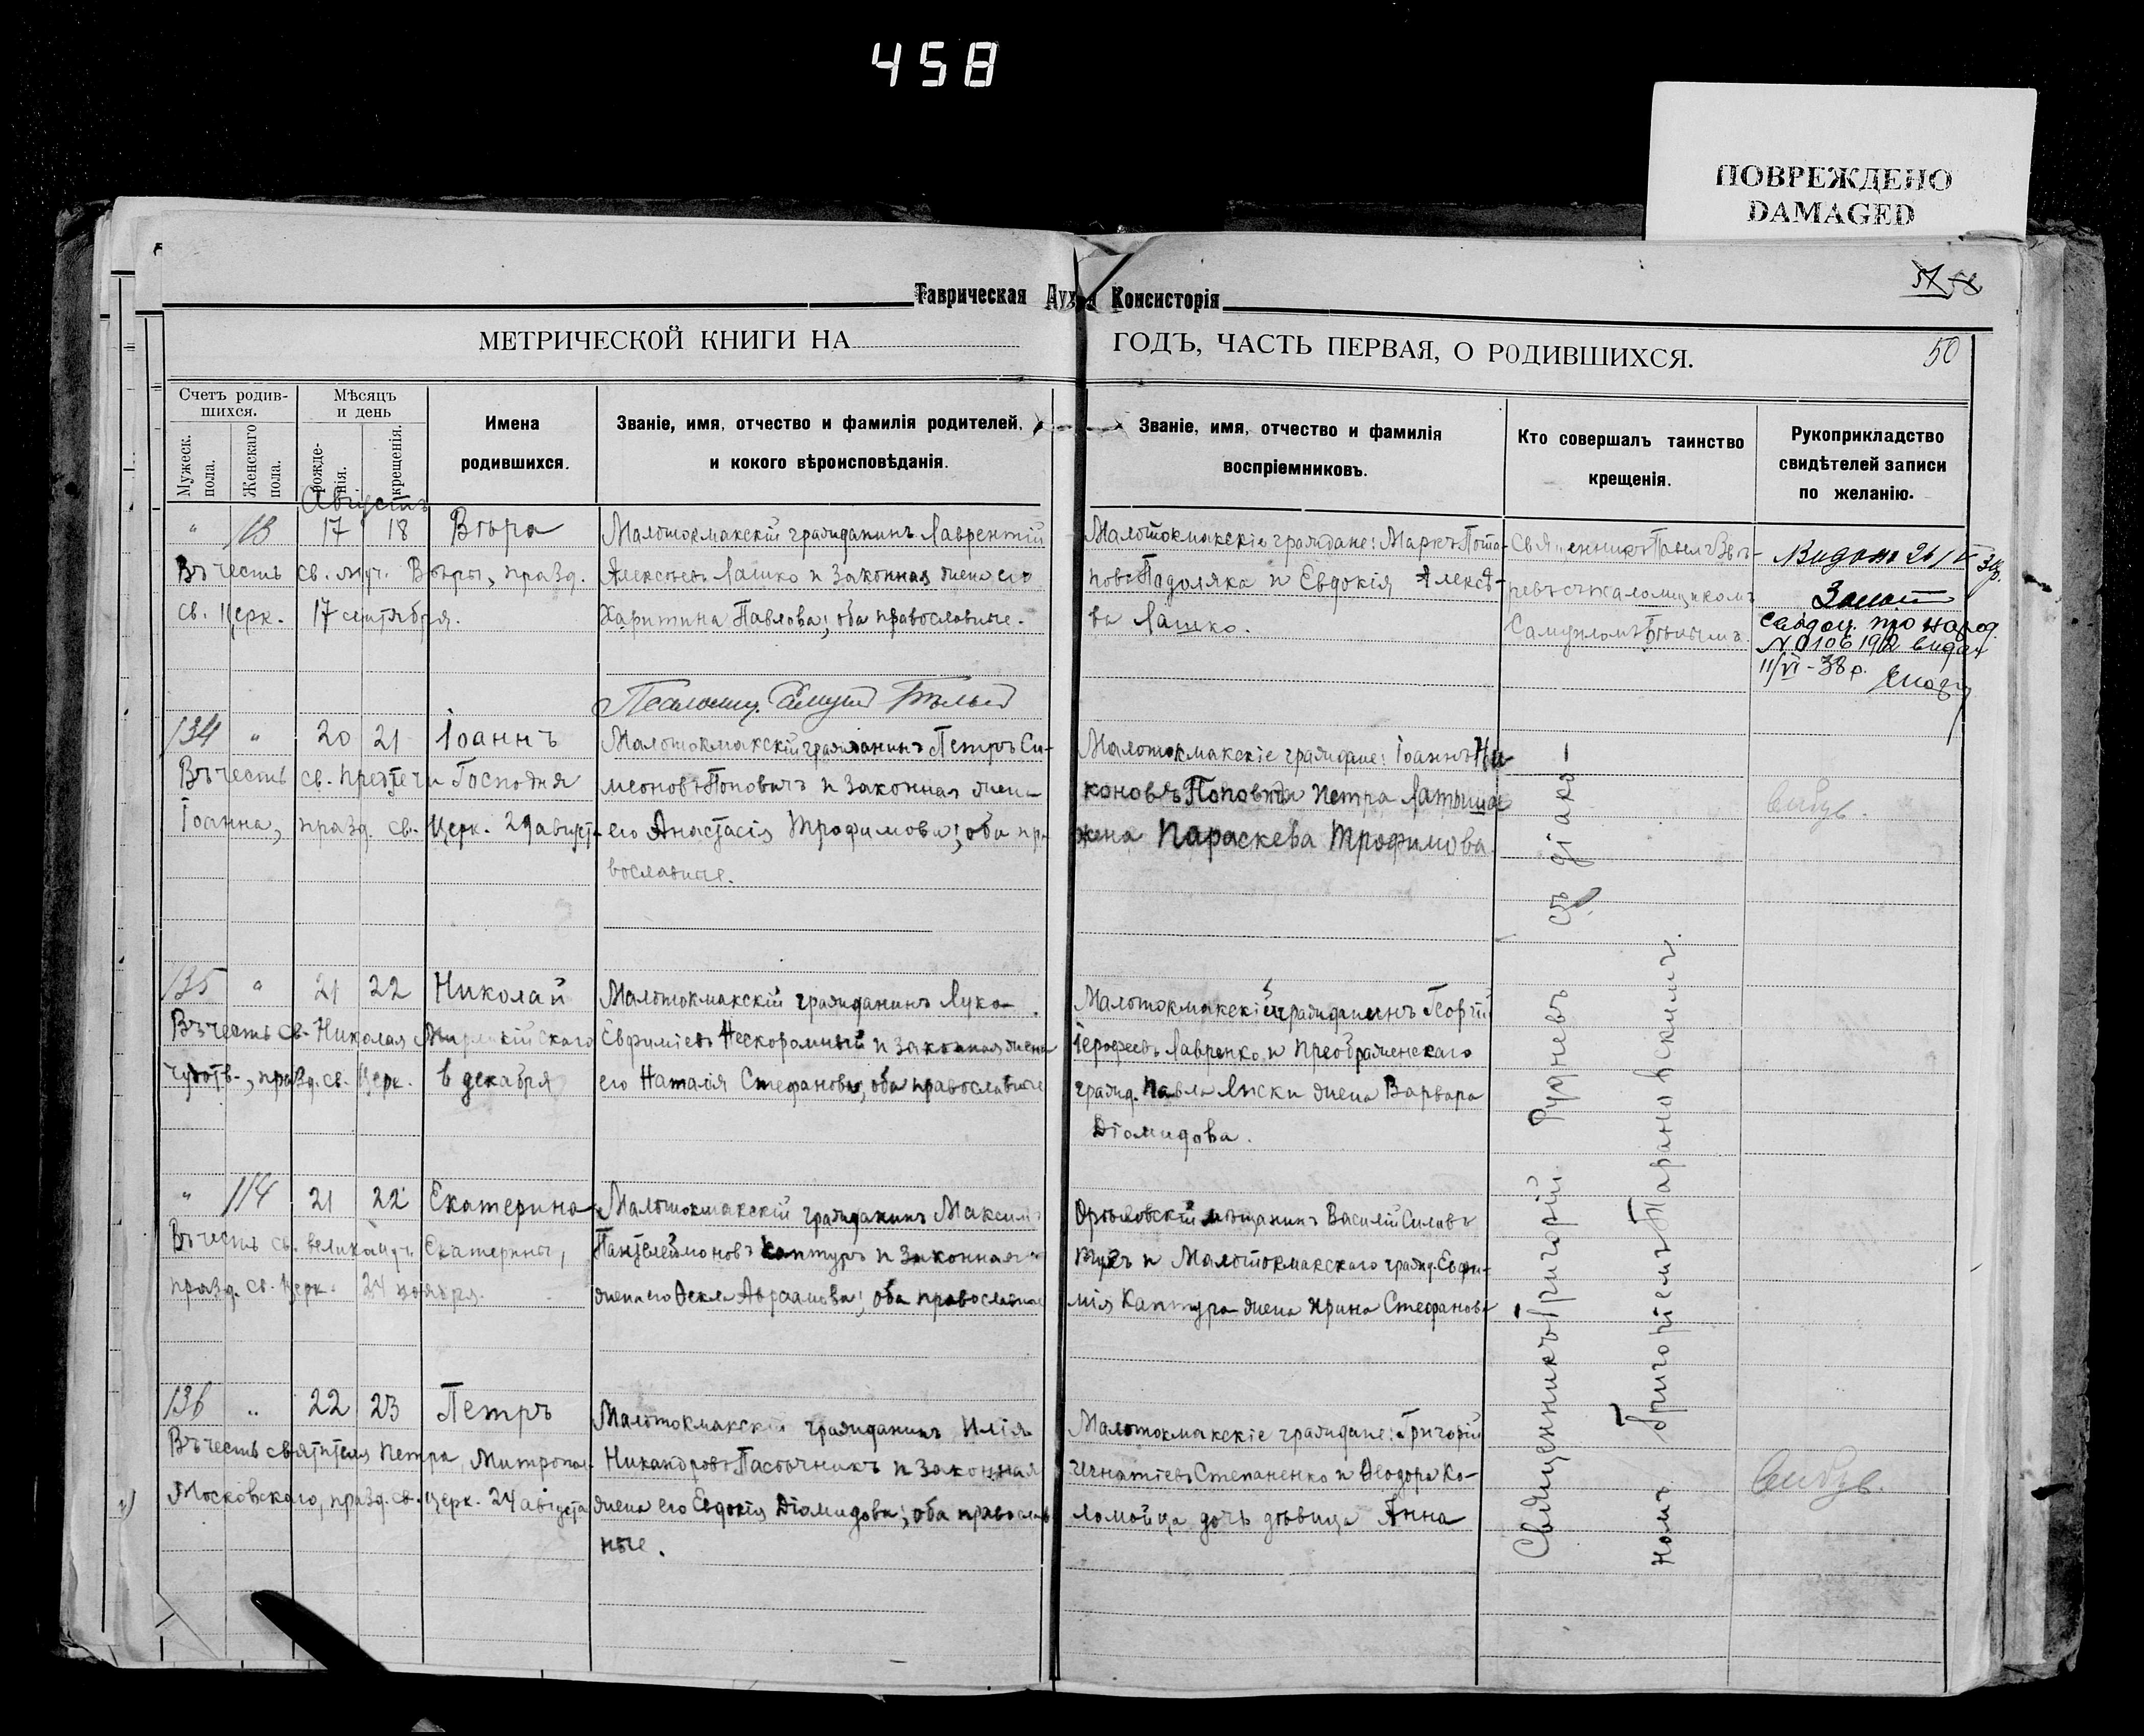 458
ПОВРЕЖДЕНО
DAMAGED
57 58
Таврическая Дух Консисторія
МЕТРИЧЕСКОЙ КНИГИ НА ГОДЪ, ЧАСТЬ ПЕРВАЯ, О РОДИВШИХСЯ.
50
Счетъ родив-
шихся.
Мужеск.
пола.
Женскаго
пола.
Мѣсяцъ
и день
рожде-
нія.
крещенія.
Имена
родившихся.
Званіе, имя, отчество и фамилія родителей,
и кокого вѣроисповѣданія.
Званіе, имя, отчество и фамилія
воспріемниковъ.
Кто совершалъ таинство
крещенія.
Рукоприкладство
свидѣтелей записи
по желанію.
Августъ
" 17 18 Вѣра
Въ честь св. муч. Вѣры, празд.
св. Церк. 17 сентября.
Малотокмакскій гражданинъ Лаврентій
Алексѣевъ Лашко и законная жена его
Харитина Павлова; оба православные.
Малотокмакскіе граждане: Маркъ Пота-
повъ Падоляка и Евдокія Алексѣ-
ва Лашко.
Священникъ Павелъ Звѣ-
ревъ съ псаломщикомъ
Самуиломъ Бѣлымъ.
Видано 21/V 3
свідоц. про народ.
N 0106192 видан
11/VI-38 р.
Псаломщ. Самуил Бѣлый
134 " 20 21 Іоаннъ
Въ честь св. Предтечи Господня
Іоанна, празд. св. Церк. 29 август.
Малотокмакскій гражданинъ Петръ Си-
меоновъ Поповичъ и законная жена
его Анастасія Трофимова; оба пра
вославные.
Малотокмакскіе граждане: Іоаннъ Ни-
коновъ Поповъ и Петра Латыша
жена Параскева Трофимова
135 " 21 22 Николай
Въ честь св. Николая Мирликійскаго
чудотв., празд. св. Церк. 6 декабря
Малотокмакскій гражданинъ Лука
Евфиміевъ Нескоромный и законная жена
его Наталія Стефанова, оба православные
Малотокмакскій гражданинъ Георгій
Іерофеевъ Лавренко и Преображенскаго
гражд. Павла Лыски жена Варвара
Діомидова.
" 114 21 22 Екатерина
Въ честь св. великомуч. Екатерины,
празд. св. Церк. 24 ноября.
Малотокмакскій гражданинъ Максимъ
Пантелеймоновъ Каптуръ и законная
жена его Фекла Авраамова; оба православные
Орѣховскій мѣщанинъ Василій Силавъ
и Малотокмакскаго гражд. Евфи-
мія Каптура жена Ирина Стефанова
136 " 22 23 Петръ
Въ честь святителя Петра, Митропол.
Московскаго, празд. св. Церк. 24 августа
Малотокмакскій гражданинъ Илія
Никаноровъ Пасѣчникъ и законная
жена его Евдокія Діомидова; оба православ
ные.
Малотокмакскіе граждане: Григорій
Игнатіевъ Степаненко и Феодора Ко-
ломойца дочь дѣвица Анна
Священникъ Григорій Рудневъ съ діако-
номъ Григоріемъ Тарановскимъ.